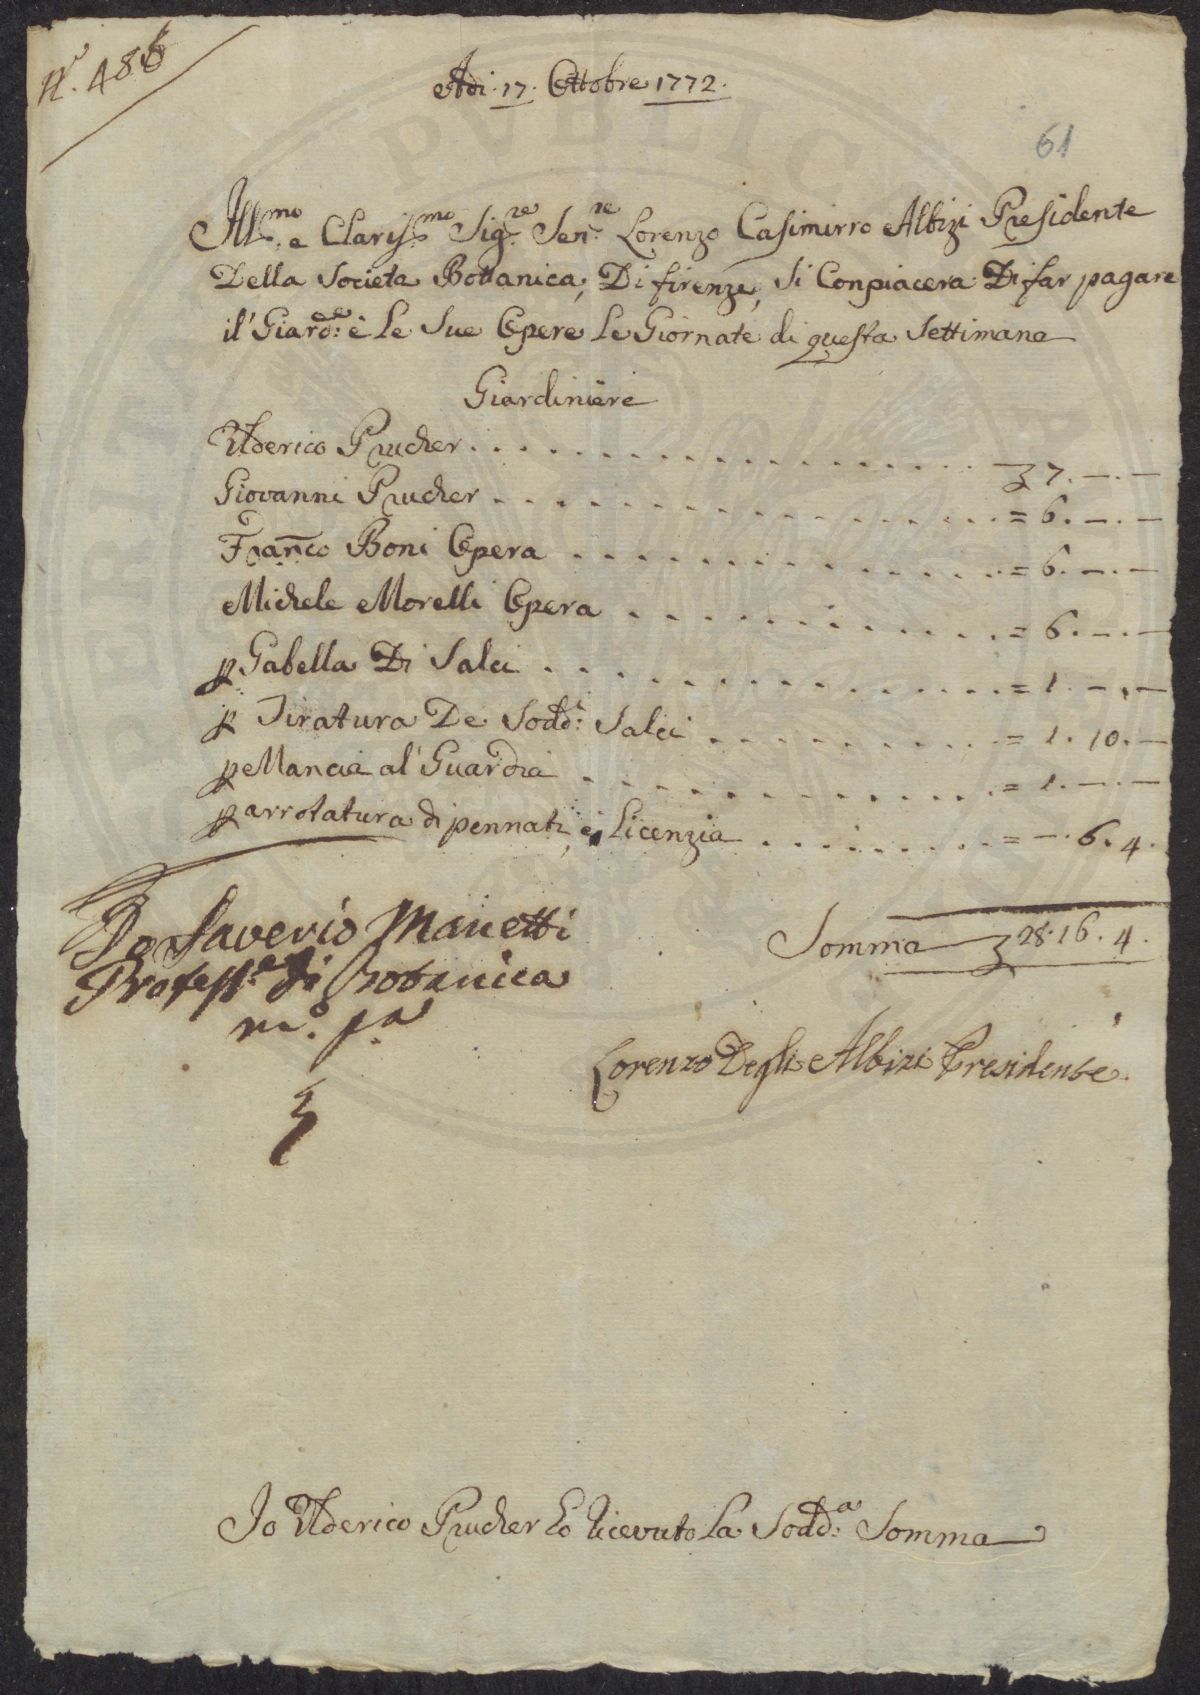 N.° 486
Adi. 17. Ottobre 1772.
61
Ill.mo e Claris.mo Sig.re Sen.re Lorenzo Casimirro Albizi Presidente
Della Societa Bottanica, Di firenze, si Conpiacera Di far pagare
il' Giard.e: è le sue Opere le Giornate di questa settimana
Giardiniere
Ulderico Prucher . . . . . . . . . . . . 7. —. —
Giovanni Prucher . . . . . . . . . . . . = 6. —. —
Fran.co Boni Opera . . . . . . . . . . . . = 6. —. —
Michele Morelli Opera . . . . . . . . . . . . = 6. —. —
p Gabella Di Salci . . . . . . . . . . . . = 1. —. —
p Tiratura De Sodd.i: Salci . . . . . . . . . = 1. 10. —
p Mancia al' Guardia . . . . . . . . . . . . = 1. —. —
p arrotatura di pennati, e licenzia . . . . . . . . = —. 6. 4.
Somma 28. 16. 4.
Io Saverio Manetti
Profess.e di Botanica
m.o p.a
Lorenzo Degli Albizi Presidente.
Io Ulderico Prucher ho ricevuto la Sodd.a: Somma
PVBLIC